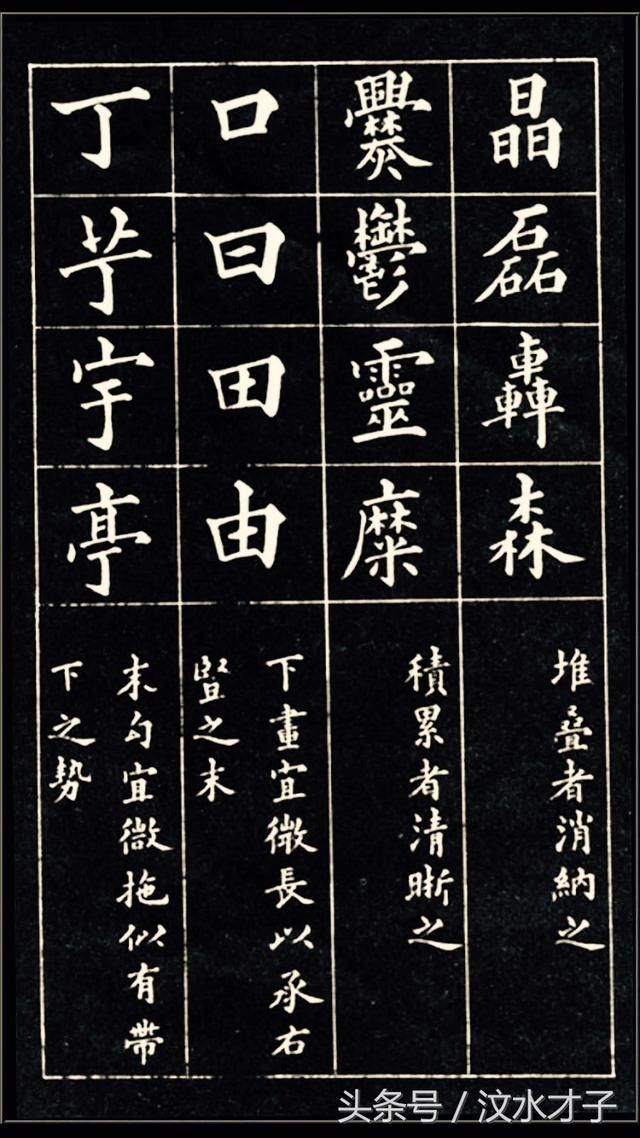 晶磊轟森
堆叠者消納之
爨鬱靈糜
積累者清晰之
口曰田由
下畫宜微長以承右
豎之末
丁艼宇亭
末勾宜微拖似有帶
下之勢
头条号 / 汶水才子